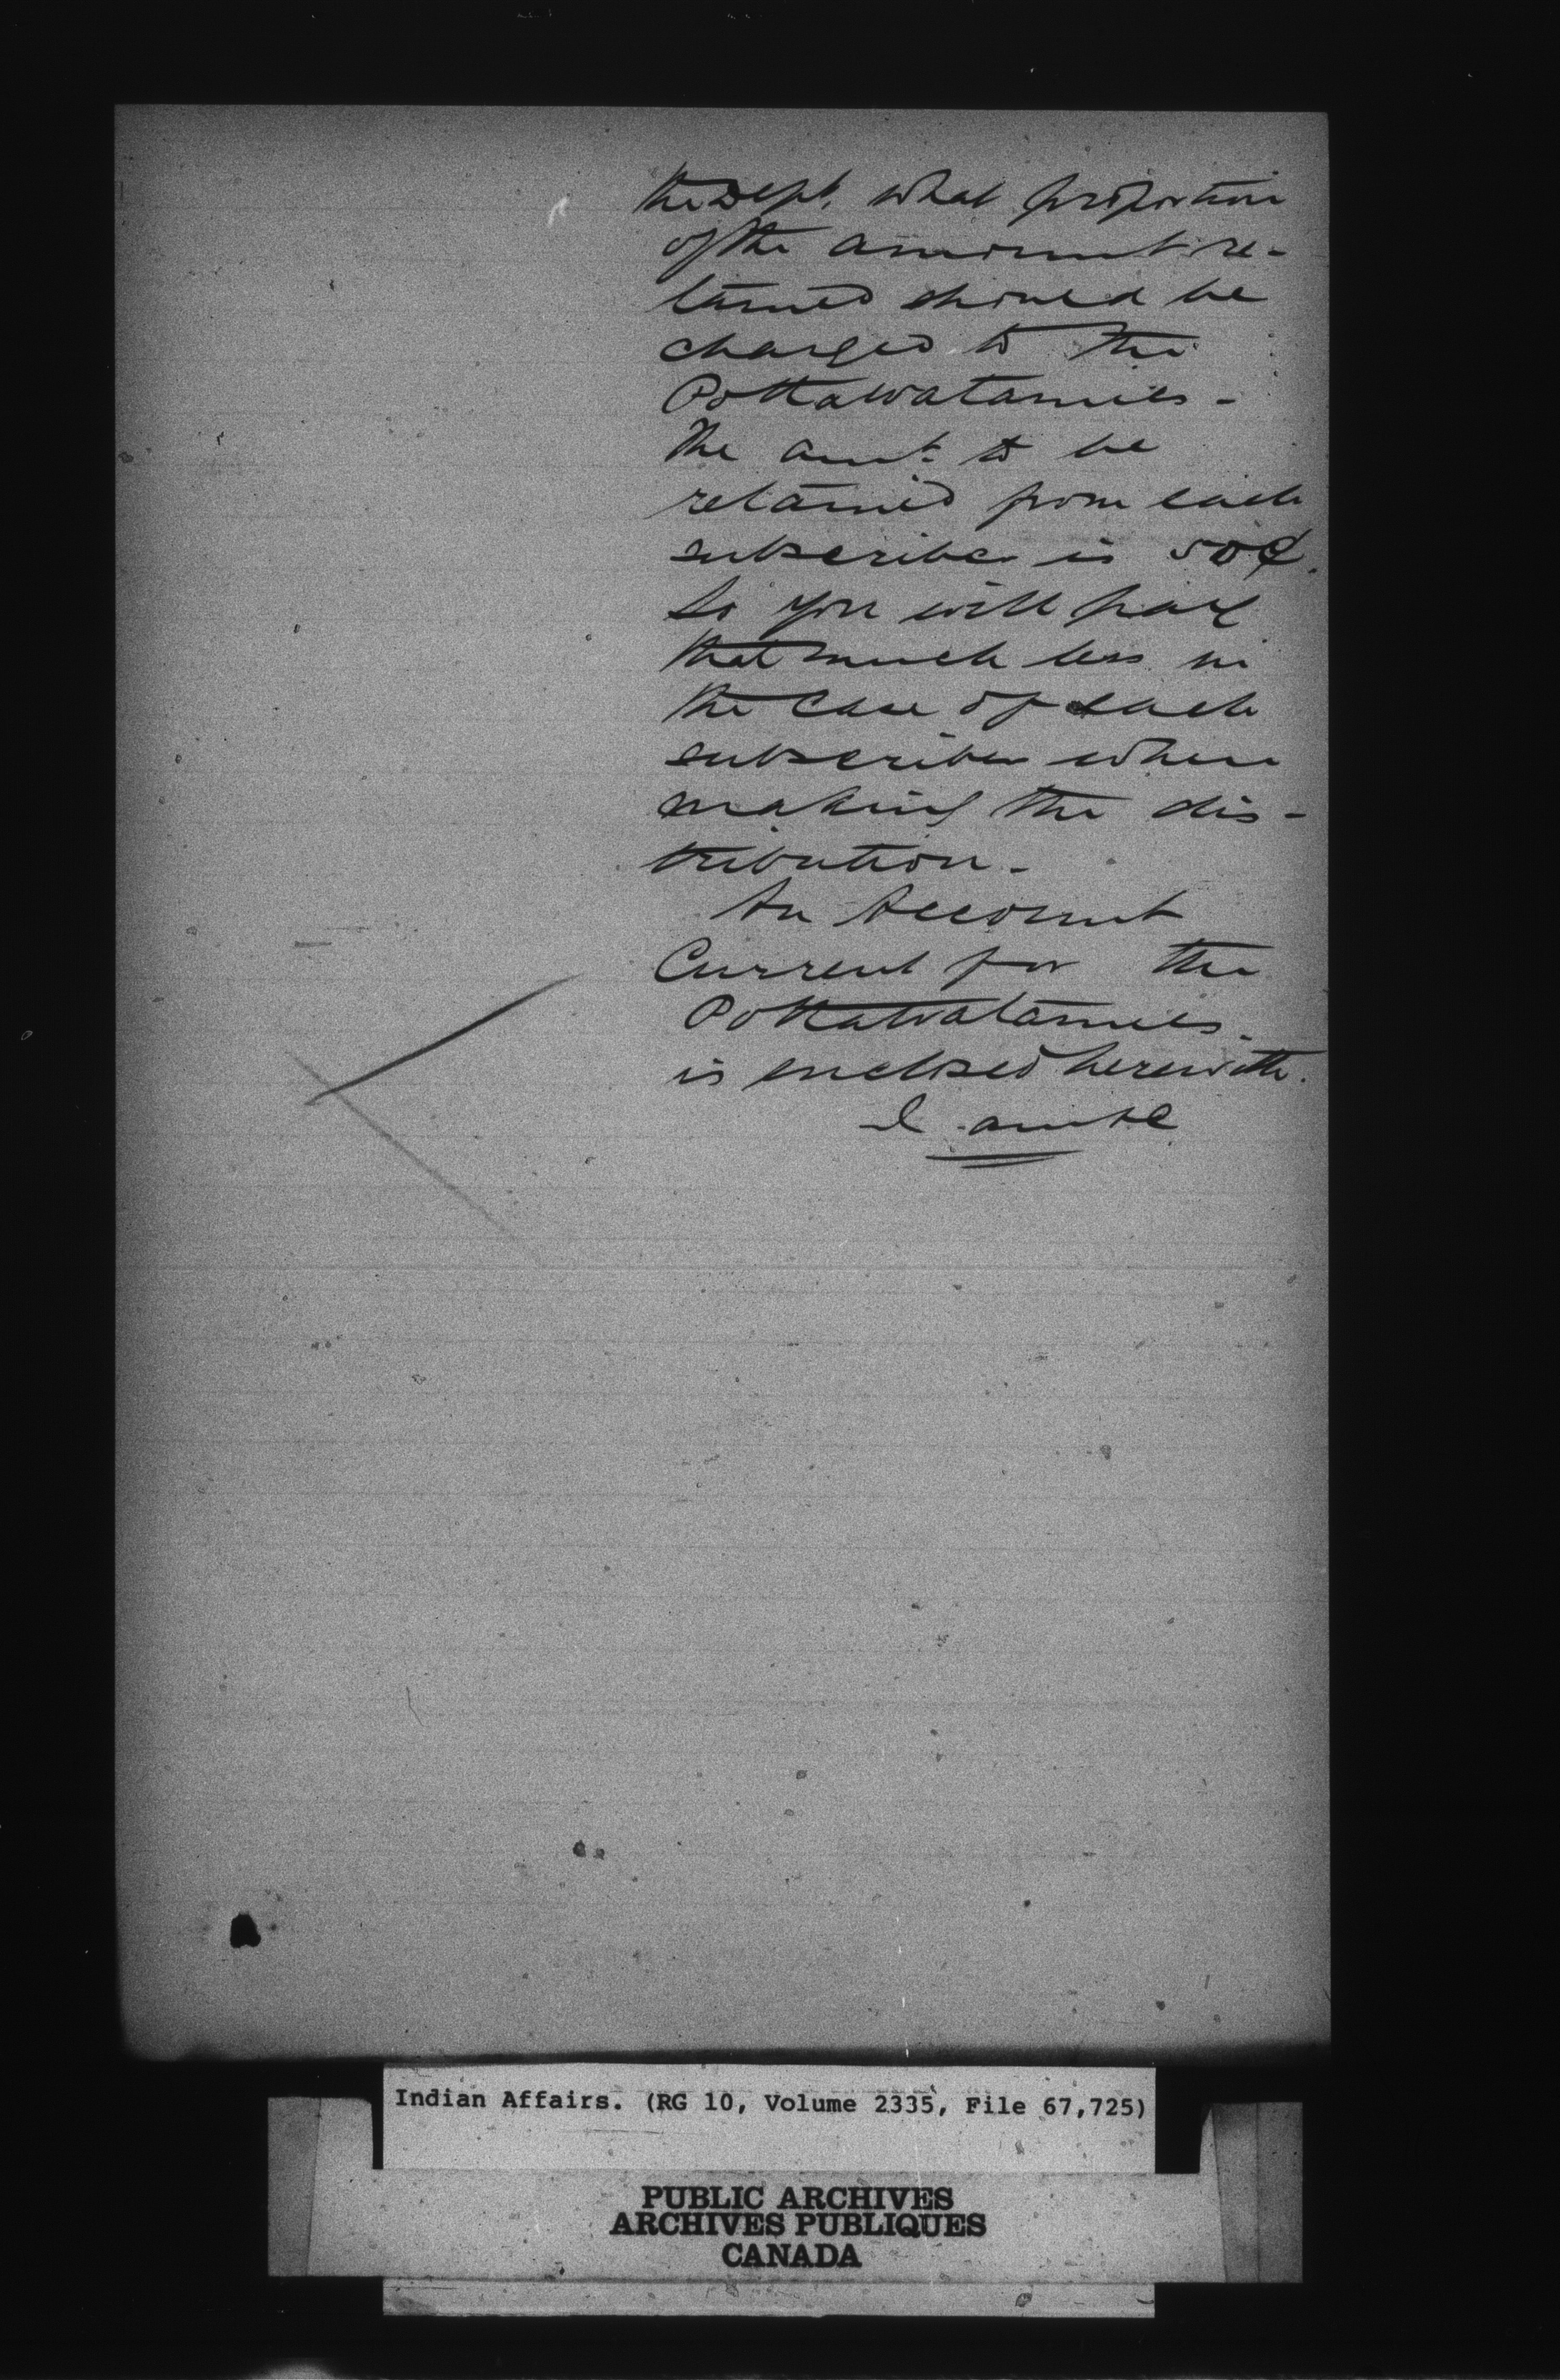 the Dept. what proportion
of the amount re-
tained should be
charged to the
Pottawatamies -
The amt. to be
retained from each
subscriber is 50¢.
So you will pay
that much less in
the case of each
subscriber when
making the dis-
tribution -
An Account
Current for the
Pottawatamies -
is enclosed herewith.
I am &c
Indian Affairs. (RG 10, Volume 2335, File 67,725)
PUBLIC ARCHIVES
ARCHIVES PUBLIQUES
CANADA